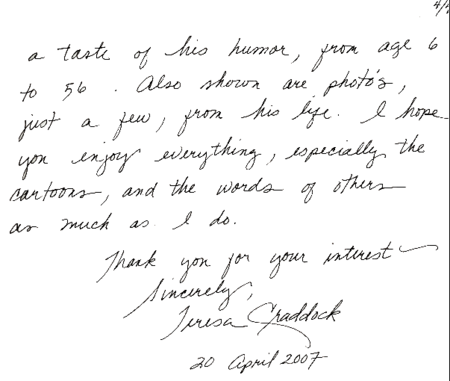 4/4
a taste of his humor, from age 6
to 56. Also shown are photo's,
just a few, from his life. I hope
you enjoy everything, especially the
cartoons, and the words of others
as much as I do.
Thank you for your interest
Sincerely,
Teresa Craddock
20 April 2007